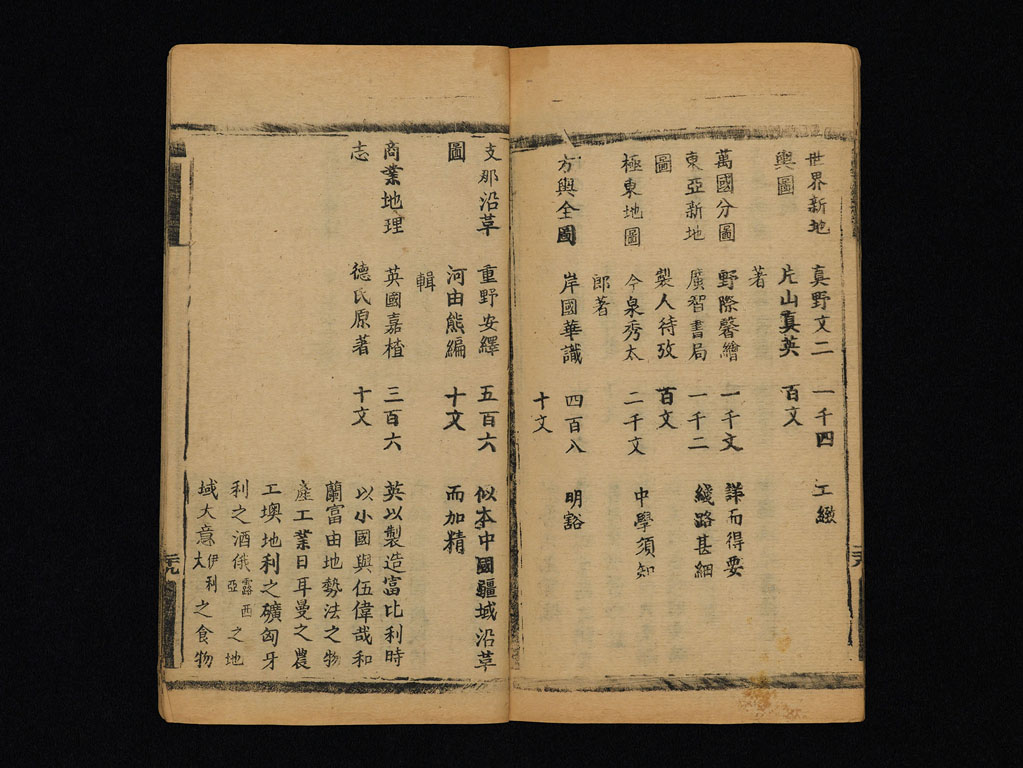 世界新地 真野文二 一千四 工緻
輿圖 片山真英 百文
著
萬國分圖 野際馨繪 一千文 詳而得要
東亞新地 廣智書局 一千二 綫路甚細
圖 製人待攷 百文
極東地圖 今泉秀太 二千文 中學須知
郎著
方輿全圖 岸國華識 四百八 明豁
十文
支那沿革 重野安繹 五百六 似本中國疆域沿革
圖 河由熊編 十文 而加精
輯
商業地理 英國嘉楂 三百六 英以製造富比利時
志 德氏原著 十文 以小國與伍偉哉和
蘭富由地勢法之物
產工業日耳曼之農
工墺地利之礦匈牙
利之酒俄露西亞之地
域大意伊利大之食物